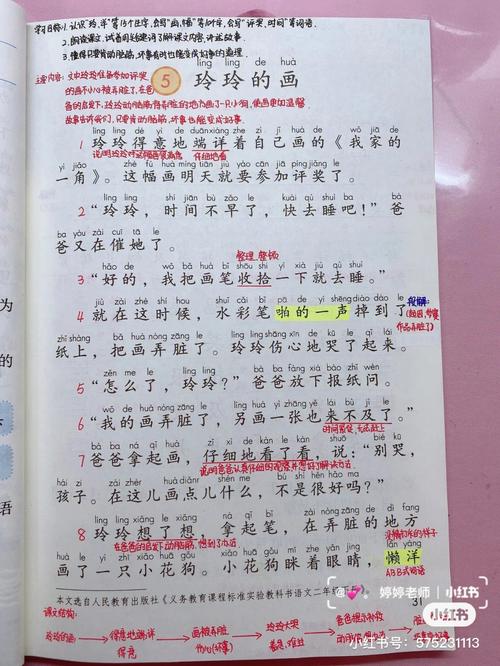 学习目标:1.认识"玲、详"等13个生字,会写"画、幅"等10个字,会写"评奖、时间"等词语。
2.朗读课文,试着用关键词了解课文内容,讲述故事
3.懂得只要肯动脑筋,坏事有时也能变成好事的道理
主要内容:文中玲玲准备参加评奖
的画不小心被弄脏了,在爸
爸的启发下,玲玲动脑筋,在弄脏的地方画了一只小狗,使画更加温馨
故事告诉我们,只要肯动脑筋,坏事也能变成好事。
líng líng de huà
5 玲玲的画
líng líng dé yì de duānxiáng zhe zì jǐ huà de wǒ jiā de
1 玲玲得意地端详着自己画的《我家的
仔细地看
yì jiǎo zhè fú huà míng tiān jiù yào cān jiā píng jiǎng le
一角》。这幅画明天就要参加评奖了。
líng líng shí jiān bù zǎo le kuài qù shuì ba bà
2 “玲玲,时间不早了,快去睡吧!”爸
ba yòu zài cuī tā le
爸又在催她了。
整理 整顿
hǎo de wǒ bǎ huà bǐ shōu shi yí xià jiù qù shuì
3 “好的,我把画笔收拾一下就去睡。”
jiù zài zhè shí hou shuǐ cǎi bǐ pā de yì shēng diào dào le
4 就在这时候,水彩笔啪的一声掉到了
zhǐ shàng bǎ huà nòng zāng le líng líng shāng xīn de kū le qǐ lái
纸上,把画弄脏了。玲玲伤心地哭了起来。
作品弄脏了)
zěn me le líng líng bà ba fàng xià bào zhǐ wèn
5 “怎么了,玲玲?”爸爸放下报纸问。
wǒ de huà nòng zāng le lìng huà yì zhāng yě lái bu jí le
6 “我的画弄脏了,另画一张也来不及了。”
时间紧促,无法赶上
bà ba ná qǐ huà zǐ xì de kàn le kàn shuō bié kū
7 爸爸拿起画,仔细地看了看,说:“别哭,
hái zi zài zhèr huà diǎnr shén me bú shì hěn hǎo ma
孩子。在这儿画点儿什么,不是很好吗?”
líng líng xiǎng le xiǎng ná qǐ bǐ zài nòng zāng de dì fang
8 玲玲想了想,拿起笔,在弄脏的地方
在爸爸的启发下动脑筋,想到了办法
huà le yì zhī xiǎo huā gǒu xiǎo huā gǒu mī zhe yǎn jing lǎn yáng
画了一只小花狗。小花狗眯着眼睛,懒洋
ABB式词语
本文选自人民教育出版社《义务教育课程标准实验教科书语文二年级
31
课文结构:
玲玲的画 → 得意地端详 → 画被弄脏 → 玲玲大哭 → 爸爸提示补救
得意
婷婷老师 小红书
小红书
小红书号:575231113
为
的
语